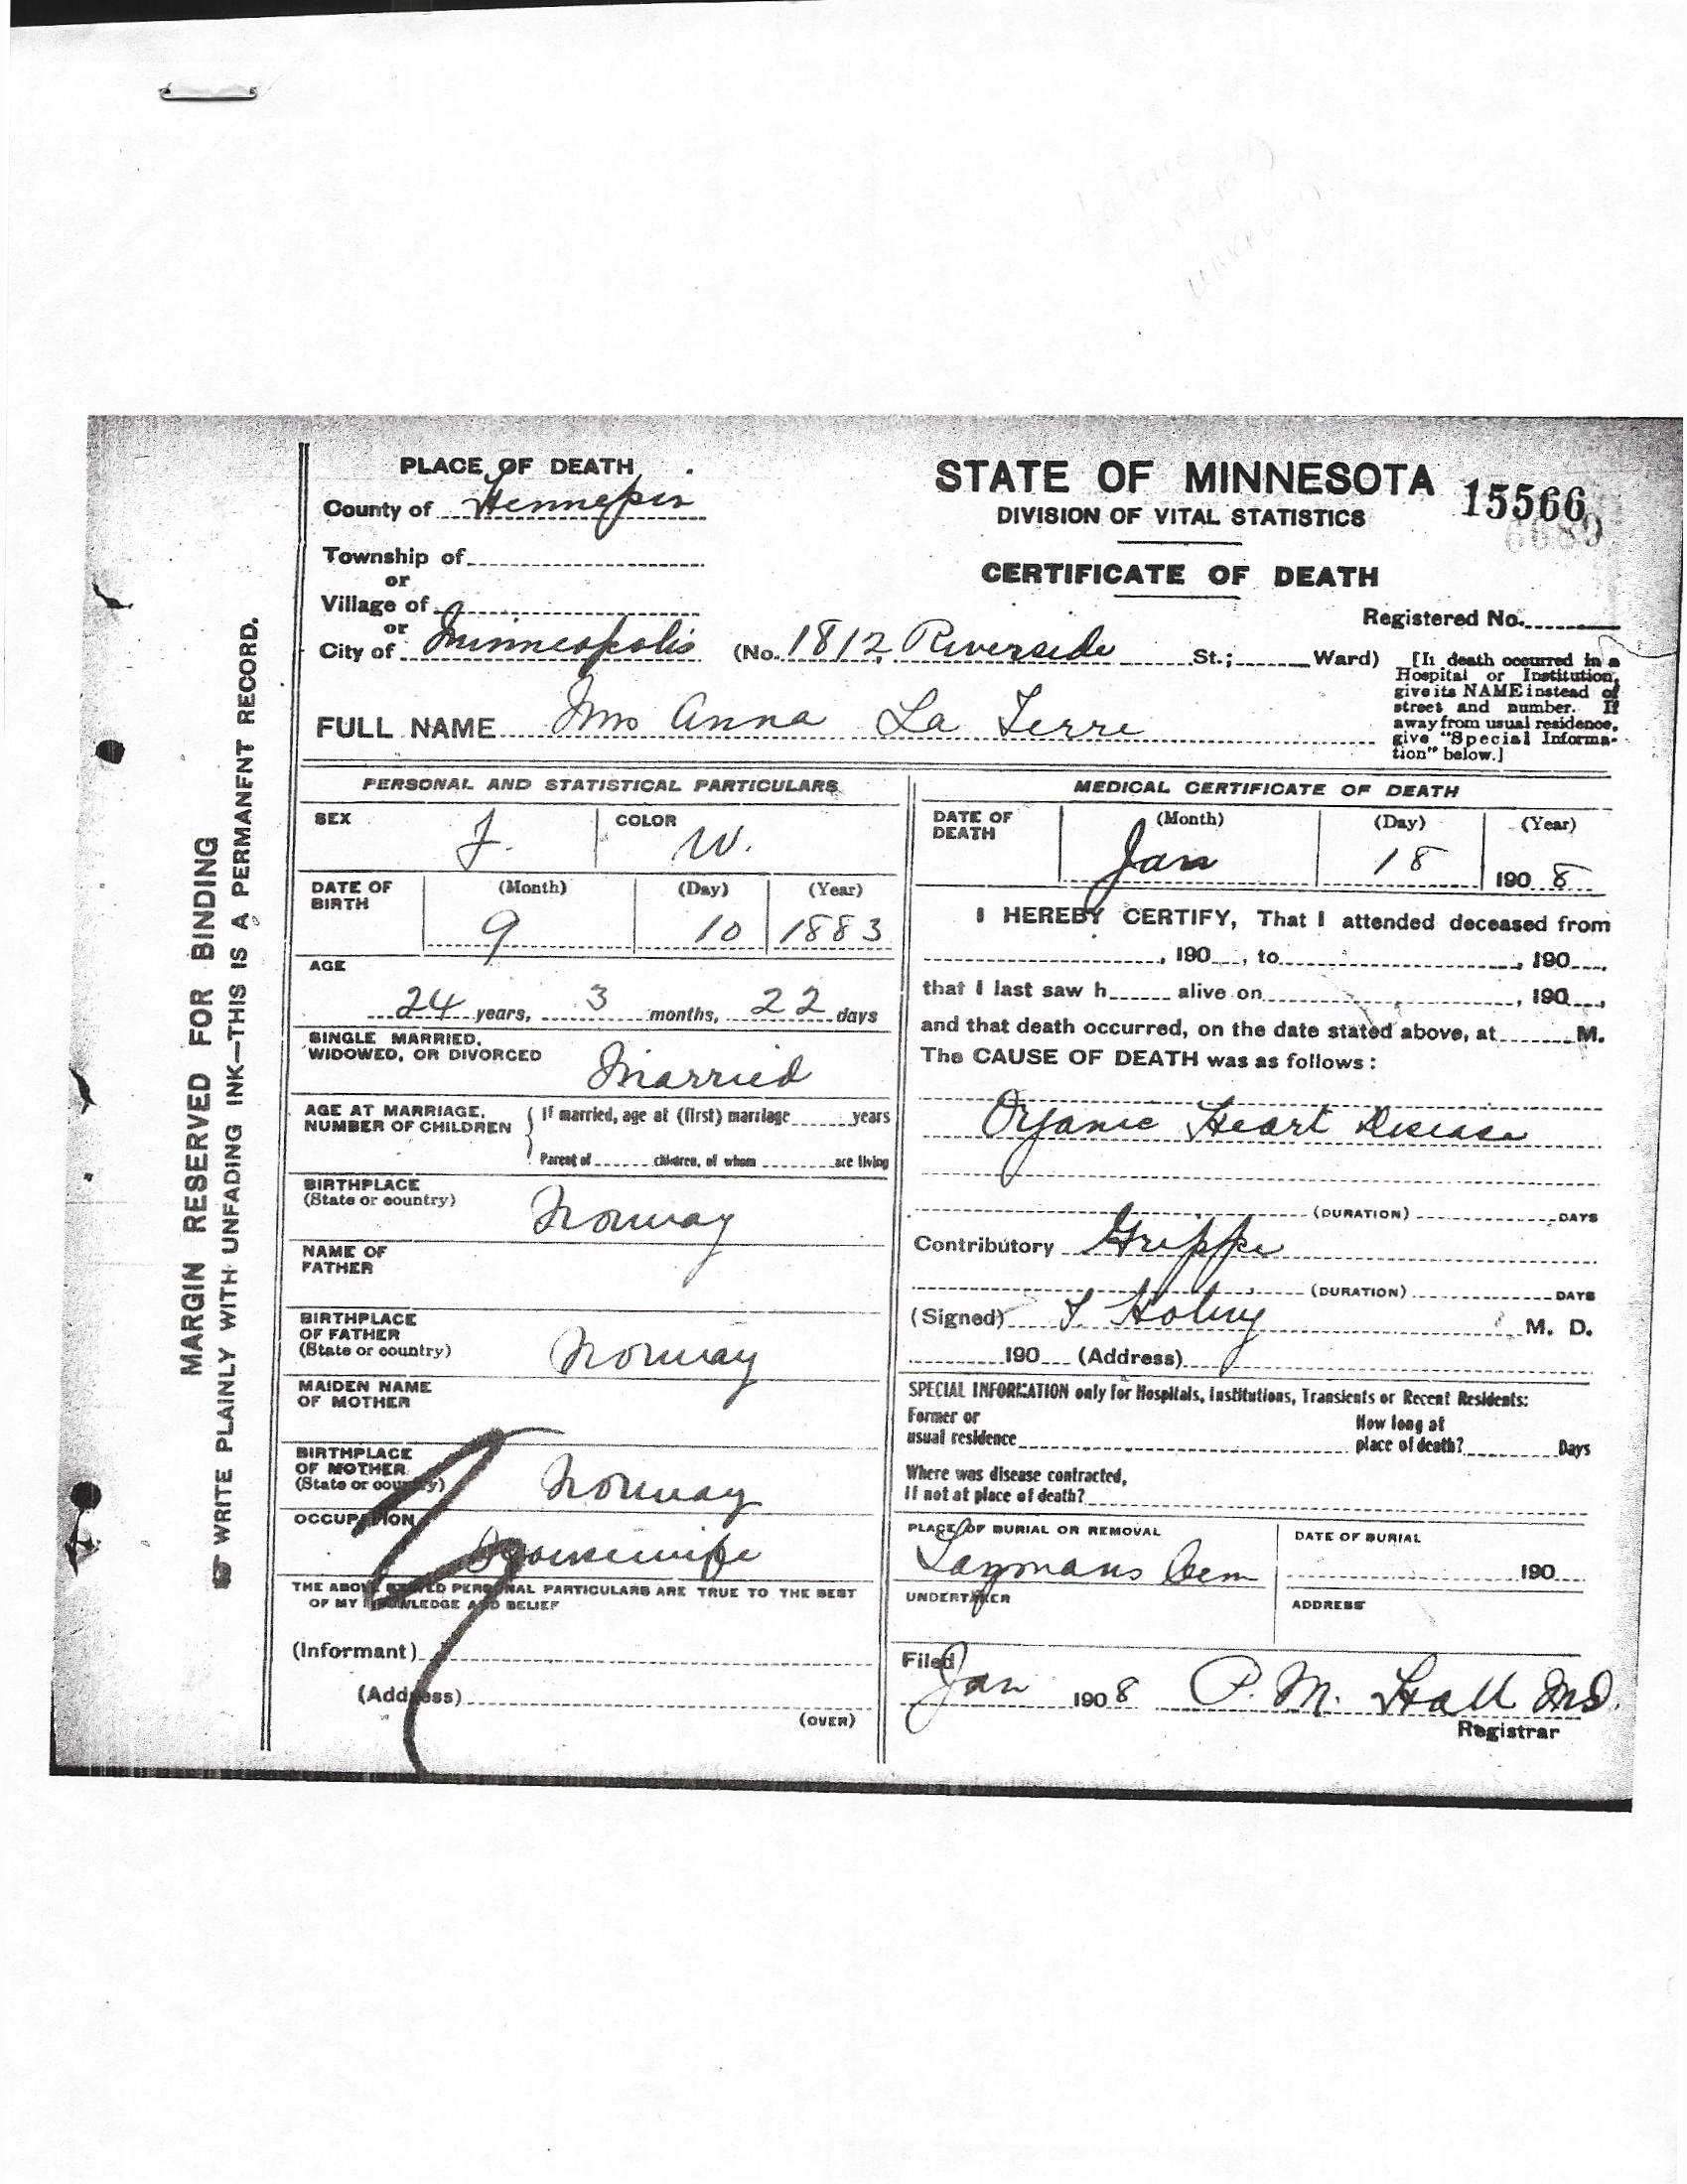 PLACE OF DEATH
County of Hennepin
Township of
or
Village of
or
City of Minneapolis (No. 1812 Riverside St.; Ward)
STATE OF MINNESOTA 15566
DIVISION OF VITAL STATISTICS
CERTIFICATE OF DEATH
Registered No.
[If death occurred in a
Hospital or Institution,
give its NAME instead of
street and number. If
away from usual residence,
give "Special Informa-
tion" below.]
FULL NAME Mrs Anna La Terre
MARGIN RESERVED FOR BINDING
WRITE PLAINLY WITH UNFADING INK—THIS IS A PERMANENT RECORD.
PERSONAL AND STATISTICAL PARTICULARS
SEX F. COLOR W.
DATE OF BIRTH (Month) (Day) (Year)
9 10 1883
AGE
24 years, 3 months, 22 days
SINGLE MARRIED,
WIDOWED, OR DIVORCED Married
AGE AT MARRIAGE, If married, age at (first) marriage years
NUMBER OF CHILDREN
Parent of children, of whom are living
BIRTHPLACE
(State or country) Norway
NAME OF
FATHER
BIRTHPLACE
OF FATHER
(State or country) Norway
MAIDEN NAME
OF MOTHER
BIRTHPLACE
OF MOTHER
(State or country) Norway
OCCUPATION
Housewife
THE ABOVE STATED PERSONAL PARTICULARS ARE TRUE TO THE BEST
OF MY KNOWLEDGE AND BELIEF
(Informant)
(Address)
(OVER)
MEDICAL CERTIFICATE OF DEATH
DATE OF DEATH (Month) (Day) (Year)
Jan 18 1908
I HEREBY CERTIFY, That I attended deceased from
, 190 , to , 190 ,
that I last saw h alive on , 190 ,
and that death occurred, on the date stated above, at M.
The CAUSE OF DEATH was as follows:
Organic Heart Disease
(DURATION) DAYS
Contributory Grippe
(DURATION) DAYS
(Signed) M. D.
190 (Address)
SPECIAL INFORMATION only for Hospitals, Institutions, Transients or Recent Residents:
Former or How long at
usual residence place of death? Days
Where was disease contracted,
if not at place of death?
PLACE OF BURIAL OR REMOVAL DATE OF BURIAL
Laymans Cem 190
UNDERTAKER ADDRESS
Filed
Jan 1908 P. M. Hall MD.
Registrar